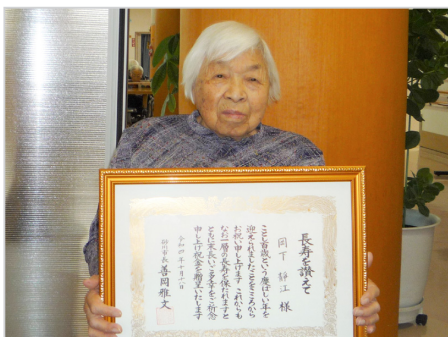 長寿を讃えて
岡下 静江 様
ことし百歳という慶ばしい年を
迎えられましたことを心から
お祝い申し上げます これからも
なお一層の長寿を保たれますと
ともに末長いご多幸をご祈念
申し上げ祝金を贈呈いたします
砂川市長 善岡雅文